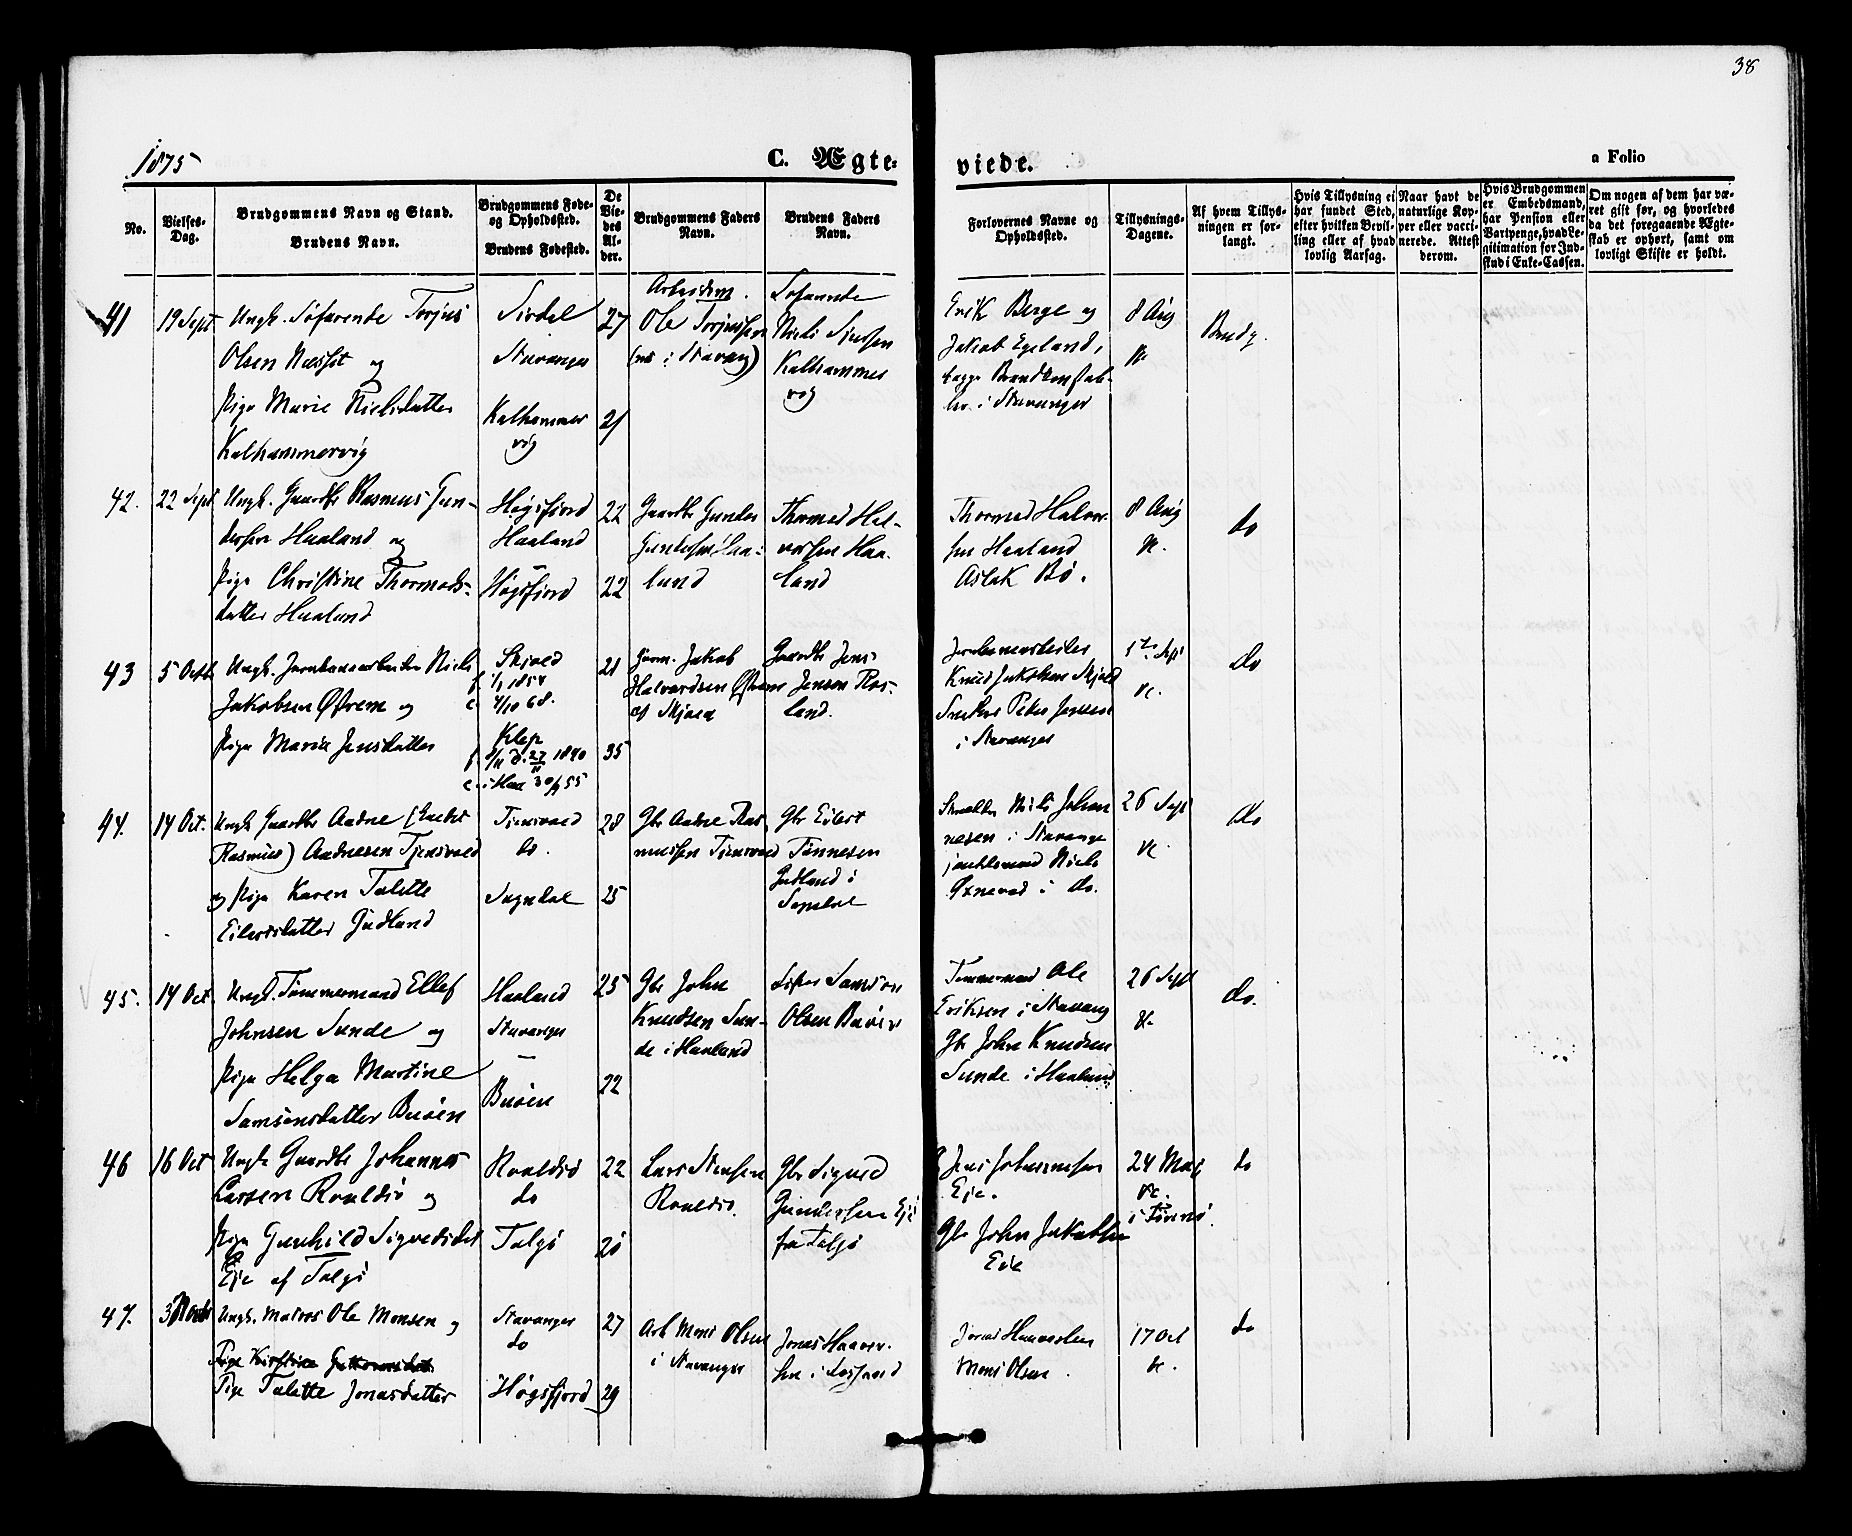 38
1875
C. Ægte-
viede.
a Folio
No.
Vielses-
Dag.
Brudgommens Navn og Stand.
Brudens Navn.
Brudgommens Føde-
og Opholdssted.
Brudens Fødested.
De
Vie-
des
Al-
der.
Brudgommens Faders
Navn.
Brudens Faders
Navn.
Forlovernes Navne og
Opholdssted.
Tillysnings-
Dagene.
Af hvem Tillys-
ningen er for-
langt.
Hvis Tillysning ei
har fundet Sted,
efter hvilken Bevil-
ling eller af hvad
lovlig Aarsag.
Naar havt de
naturlige Kop-
per eller vacci-
nerede. Attest
derom.
Hvis Brudgommen
er Embedsmand,
har Pension eller
Vartpenge, hvad Le-
gitimation for Ind-
skud i Enke-Cassen.
Om nogen af dem har væ-
ret gift før, og hvorledes
da det foregaaende Ægte-
skab er ophørt, samt om
lovligt Skifte er holdt.
41
19 Sept
Ungk. Søfarende Torjus
Olsen Næsset og
Pige Marie Nielsdatter
Kalhammervig
Sirdal
Stavanger
Kalhammer
vig
27
21
Arbeidsm.
Ole Torjussen
(nu i Stavang)
Søfarende
Niels
Kalhammer
vig
Erik Berge og
Jakob Egeland,
begge Brandkonstab-
ler i Stavanger
8 Aug
Brudg.
42.
22 Sept
Ungk. Gaardbr Rasmus Gun-
dersen Haaland og
Pige Christine Thormods-
datter Haaland
Høgsfjord
Haaland
Høgsfjord
22
22
Gaardbr Gunder
Gundersen Haa-
land
Thormod Hal-
vorsen Haa-
land
Thormod Halvor
sen Haaland
Aslak Bø.
8 Aug
do
43
5 Octb
Ungk. Jernbanearbeider Niels
Jakobsen Østrem og
Pige Maria Jensdatter
Skjold
f. 1/1 1854
c. 4/10 68.
Klep
1840
c. i Haa 30/9 55
21
35
Jakob
Halvardsen Østrem
af Skjold
Gaardbr Jens
Jensen Ros-
land.
Jernbanearbeider
Knud Jakobsen Skjold
Snedker Peder Jensen
i Stavanger
5te Sept
do
44.
14 Oct.
Ungk Gaardbr Aadne (Enchr
Rasmus) Aadnesen Tjensvold
og Pige Karen Talette
Eilertsdatter Gudland
Tjensvold
do.
Sogndal
28
25
Gbr Aadne Ras
mussen Tjensvold
Gbr Eilert
Tønnesen
Gudland i
Sogndal
Niels Johan
nesen i Stavange
Niels
i do.
26 Sept
do
45.
14 Oct
Ungk. Tømmermand Ellef
Johnsen Sunde og
Pige Helga Martine
Samsonsdatter Buøen
Haaland
Stavanger
Buøen
25
22
Gbr John
Knudsen Sun-
de i Haaland
Samson
Olsen Buøen
Tømmermand Ole
Eriksen i Stavang
Gbr John Knudsen
Sunde i Haaland
26 Sept
do.
46
16 Oct
Ungk Gaardbr Johannes
Larsen Roaldsø og
Pige Gunhild Sigvedsdat
Eje af Talgø
Roaldsø
do
Talgø
22
20
Lars
Roaldsø.
Gbr Sigved
Gundersen Eje
fra Talgø
Jens Johannesen
Eje.
Gbr John Jakobsen
Eie
24 Mai
i Finnø.
do
47.
3 Novb
Ungk. Matros Ole Monsen og
Pige Talette Jonasdatter
Stavanger
do
Høgsfjord
27
29
Arb Mons Olsen
i Stavanger
Jonas Haaver-
sen i
Jonas Haaversen
Mons Olsen.
17 Oct
do